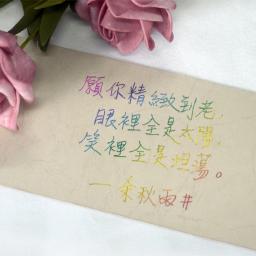 願你精緻到老,
眼裡全是太陽,
笑裡全是坦蕩。
一条秋雨#